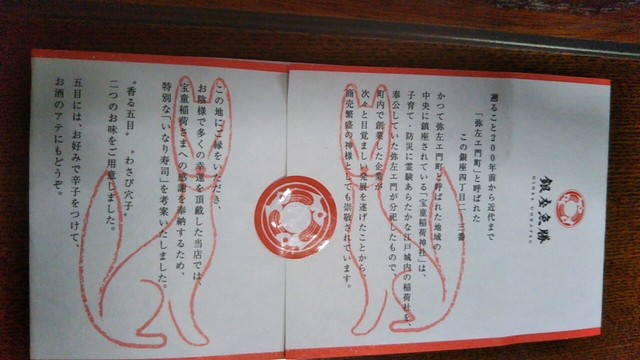 銀座魚勝
GINZA UOKATSU
遡ること200年前から近代まで
「弥左エ門町」と呼ばれた
この銀座四丁目二 三番
かつて弥左エ門町と呼ばれた地域の
中央に鎮座されている「宝童稲荷神社」は、
子育て・防災に霊験あらたかな江戸城内の稲荷社を、
奉公していた弥左エ門が分祀したもので
町内で創業した企業が
次々と目覚ましい発展を遂げたことから、
商売繁盛の神様としても崇敬されています。
この地にご縁をいただき、
お陰様で多くの幸運を頂戴した当店では、
宝童稲荷さまへの感謝を奉納するため、
特別な「いなり寿司」を考案いたしました。
“香る五目”“わさび穴子”
二つのお味をご用意しました。
五目には、お好みで辛子をつけて、
お酒のアテにもどうぞ。